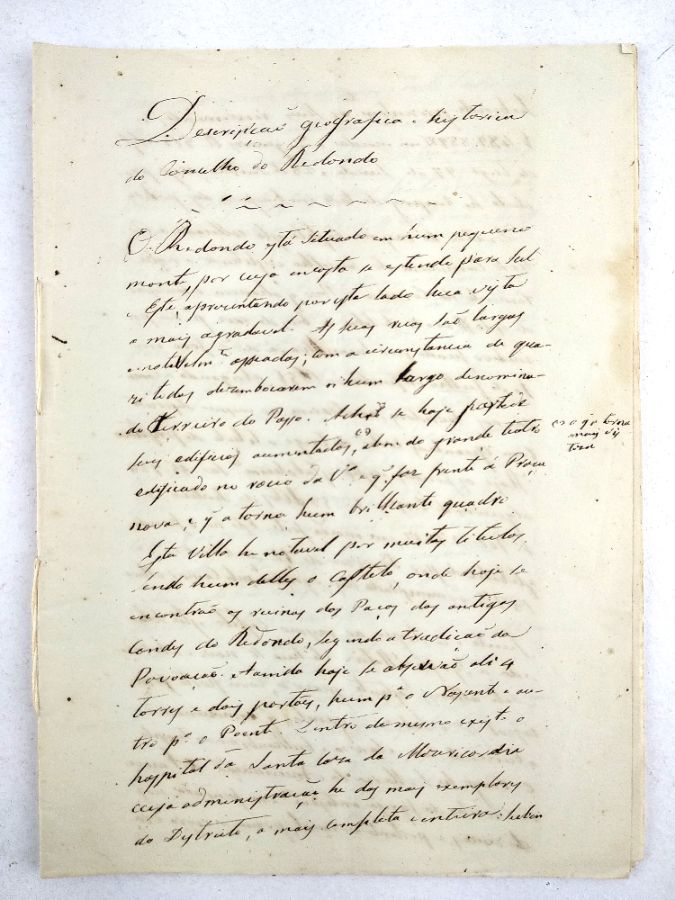 Descripção geografica e historica
do Concelho do Redondo
O Redondo está situado em hum pequeno
monte, por cuja encosta se estende para Sul
e Este, aprezentando por este lado huma vista
a mais agradavel. As suas ruas são largas
e notavelm.e asseadas; com a circunstancia de qua-
zi todas desembocarem n'hum largo denomina-
do Terreiro do Paço. Achão se hoje parte de
seus edificios aumentados, alem do grande teatro
edificado no rocio da V.a e q faz frente á Praça
nova, e q a torna hum brilhante quadro
e o q o torna
mais vis
toso
Esta Villa he notavel por muitos titulos,
sendo hum delles o Castelo, onde hoje se
encontrão as ruinas dos Paços dos antigos
Condes do Redondo, segundo a tradicção da
Povoação. Ainda hoje se observão ali 4
torres e dois portões, hum p.a o Nascente e ou-
tro p.a o Poente. Dentro do mesmo existe o
hospital da Santa Caza da Mizericordia
cuja administração he das mais exemplares
do Districto, a mais completa e inteira: